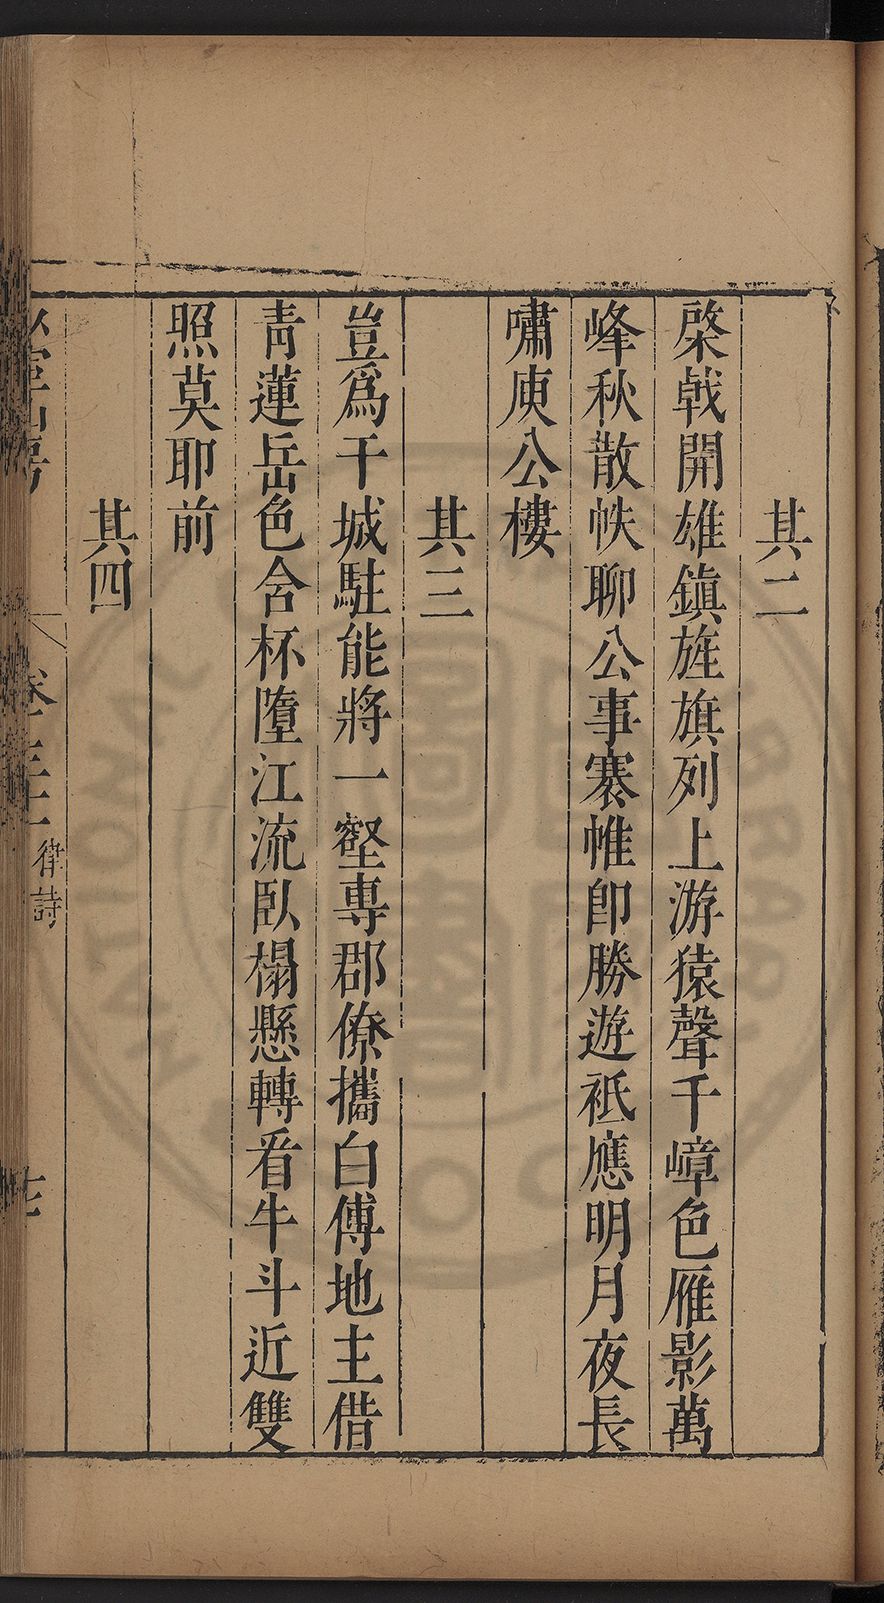 其二
棨戟開雄鎮旌旗列上游猿聲千嶂色雁影萬
峰秋散帙聊公事褰帷卽勝遊祗應明月夜長
嘯庾公樓
其三
豈爲干城駐能將一壑專郡僚攜白傅地主借
青蓮岳色含杯墮江流臥榻懸轉看牛斗近雙
照莫耶前
其四
律詩